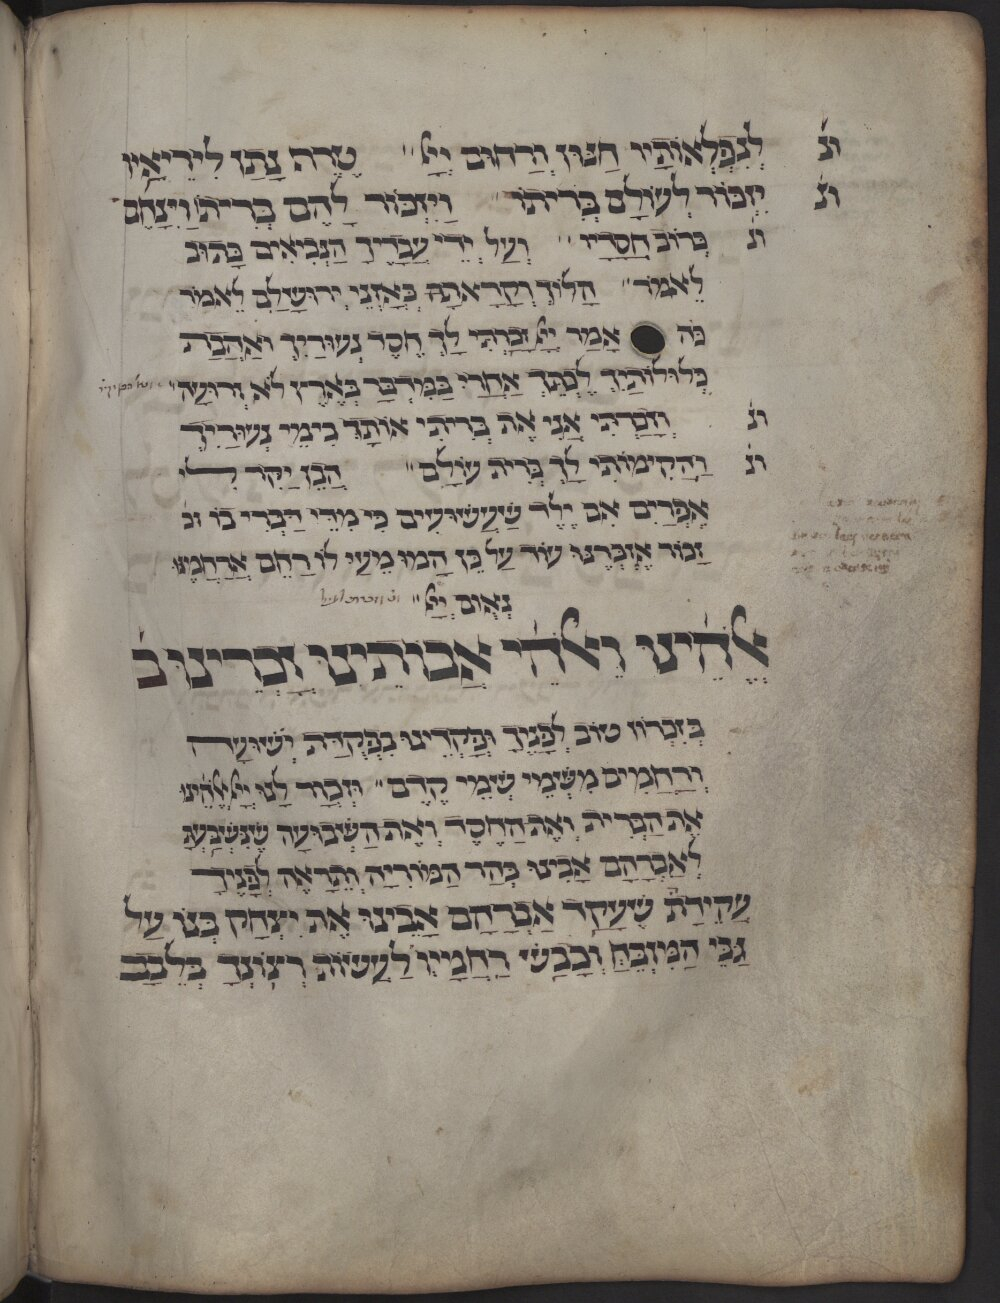 ונ לְנִפְלְאוֹתָיו חַנּוּן וְרַחוּם יְיָ׳ טֶרֶף נָתַן לִירֵיאָיו
ונ יִזְכּוֹר לְעוֹלָם בְּרִיתוֹ וַיִּזְכּוֹר לָהֶם בְּרִיתוֹ וַיִּנָּחֶם
ונ כְּרוֹב חֲסָדָיו וְעַל יְדֵי עֲבָדֶיךָ הַנְּבִיאִים כָּתוּב
לֵאמֹר הָלוֹךְ וְקָרָאתָ בְּאָזְנֵי יְרוּשָׁלַםִ לֵאמֹר
כֹּה אָמַר יְיָ זָכַרְתִּי לָךְ חֶסֶד נְעוּרַיִךְ וְאַהֲבַת
כְּלוּלוֹתַיִךְ לֶכְתֵּךְ אַחֲרַי בַּמִּדְבָּר בְּאֶרֶץ לֹא זְרוּעָה
ונ וְזָכַרְתִּי אֲנִי אֶת בְּרִיתִי אוֹתָךְ בִּימֵי נְעוּרַיִךְ
ונ וַהֲקִימוֹתִי לָךְ בְּרִית עוֹלָם הֲבֵן יַקִּיר לִי
אֶפְרַיִם אִם יֶלֶד שַׁעֲשׁוּעִים כִּי מִדֵּי דַבְּרִי בוֹ
זָכוֹר אֶזְכְּרֶנּוּ עוֹד עַל כֵּן הָמוּ מֵעַי לוֹ רַחֵם אֲרַחֲמֶנּוּ
נְאֻום יְיָ
אֱלֹהֵינוּ וֵאלֹהֵי אֲבוֹתֵינוּ זָכְרֵינוּ ב
בְּזִכְרוֹן טוֹב לְפָנֶיךָ וּפָקְדֵינוּ בִּפְקֻדַּת יְשׁוּעָה
וְרַחֲמִים מִשְּׁמֵי שְׁמֵי קֶדֶם וּזְכוֹר לָנוּ יְיָ אֱלֹהֵינוּ
אֶת הַבְּרִית וְאֶת הַחֶסֶד וְאֶת הַשְּׁבוּעָה שֶׁנִּשְׁבַּעְתָּ
לְאַבְרָהָם אָבִינוּ בְּהַר הַמּוֹרִיָּה וְתֵרָאֶה לְפָנֶיךָ
עֲקֵידַת שֶׁעָקַד אַבְרָהָם אָבִינוּ אֶת יִצְחָק בְּנוֹ עַל
גַּבֵּי הַמִּזְבֵּחַ וְכָבַשׁ רַחֲמָיו לַעֲשׂוֹת רְצוֹנְךָ בְּלֵבָב